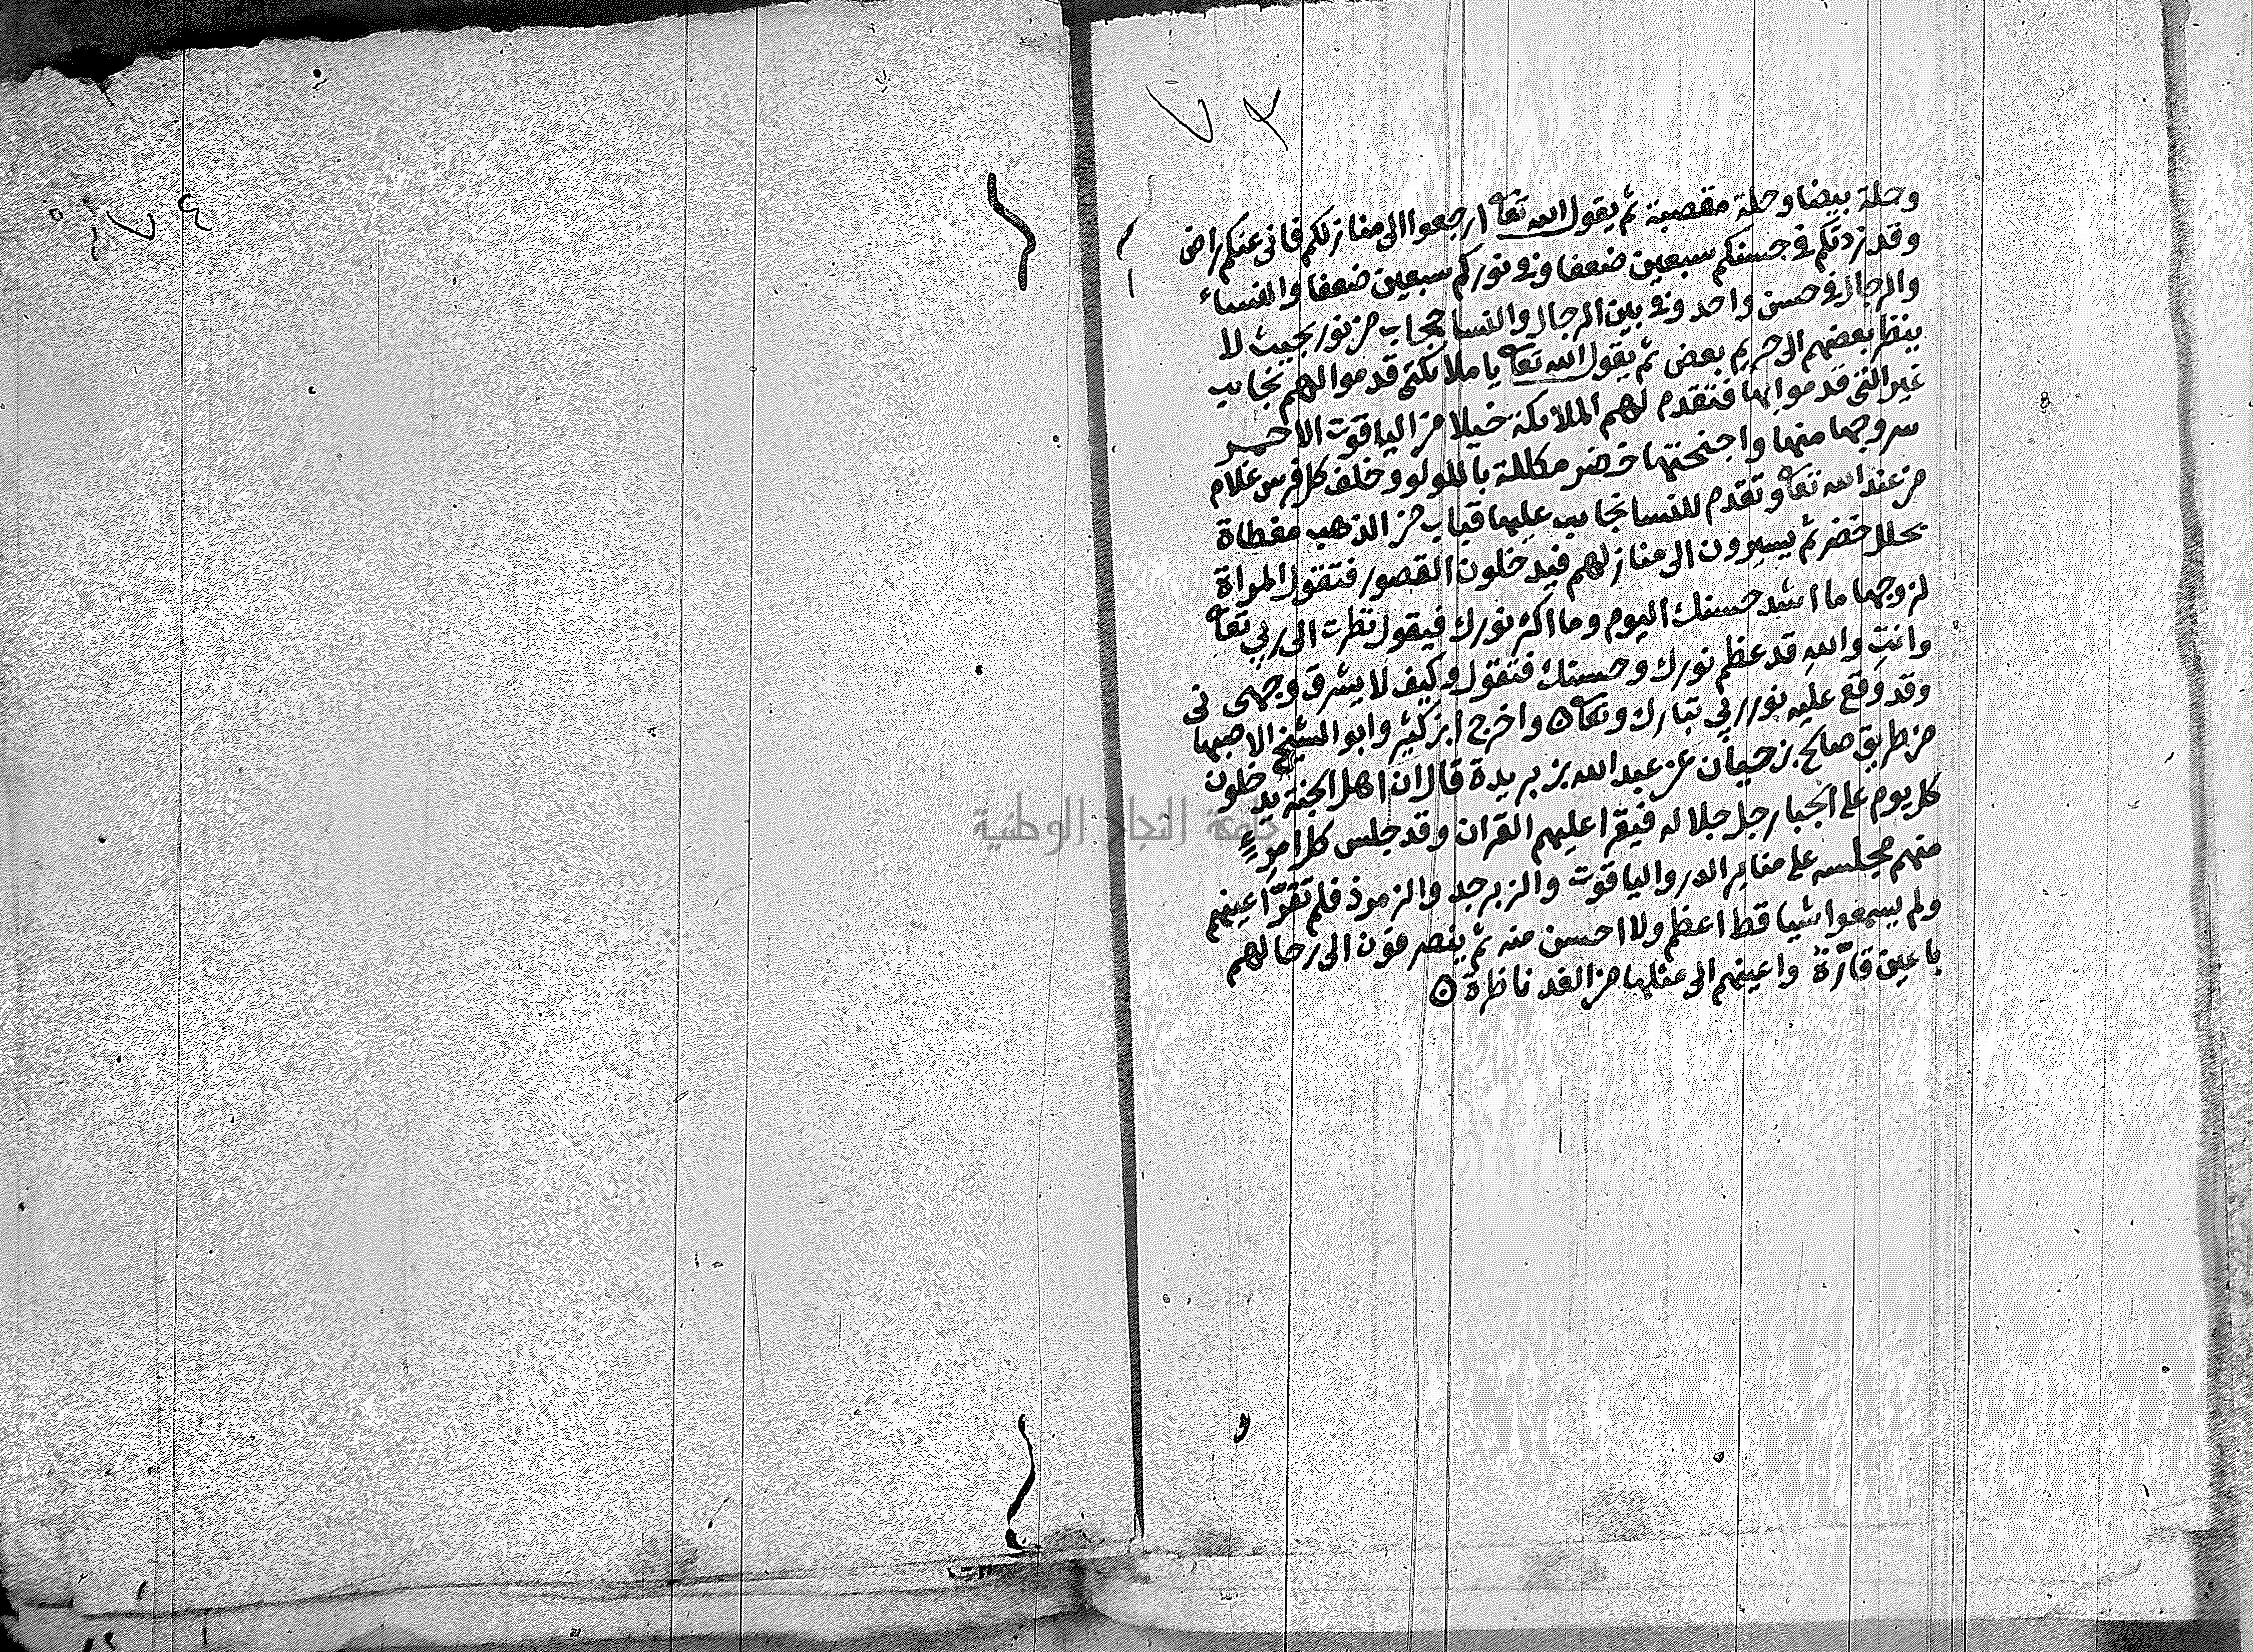 ٧٣
وحلة بيضا وحلة مقصبة ثم يقول الله تعا ارجعوا الى منازلكم فانى عنكم راض
وقد زدتكم فى حسنكم سبعين ضعفا وفى نوركم سبعين ضعفا والنساء
والرجال فى حسن واحد وفى بين الرجال والنسا حجاب من نور بحيث لا
ينظر بعضهم الى حريم بعض ثم يقول الله تعا يا ملائكتى قدموا لهم نجايب
غير التى قدموا بها فتقدم لهم الملائكة خيلا من الياقوت الاحمر
سروجها منها واجنحتها خضر مكللة باللولو وخلف كل فرس غلام
من عند الله تعا وتقدم للنسا نجايب عليها قباب من الذهب مغطاة
بحلل خضر ثم يسيرون الى منازلهم فيدخلون القصور فتقول المراة
لزوجها ما اشد حسنك اليوم وما اكثر نورك فيقول نظرت الى ربي تعا
وانتِ واللهِ قد عظم نورك وحسنك فتقول وكيف لا يشرق وجهى
وقد وقع عليه نور ربي تبارك وتعا ۞ واخرج ابن كثير وابو الشيخ الاصبهانى
من طريق صالح بن حيان عن عبد الله بن بريدة قال ان اهل الجنة يدخلون
كل يوم على الجبار جل جلاله فيقرا عليهم القران وقد جلس كل امرِءٍ
منهم مجلسه على منابر الدر والياقوت والزبرجد والزمرذ فلم تقرّ اعينهم
ولم يسمعوا شيا قط اعظم ولا احسن منه ثم ينصرفون الى رحالهم
باعين قارّة واعينهم الى مثلها من الغد ناظرة ۞
٧٤
جامعة النجاح الوطنية